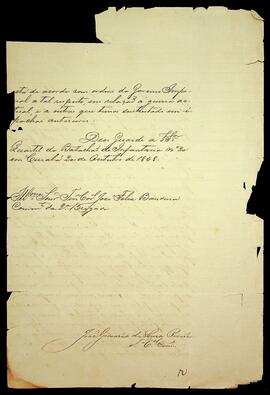 está de acordo com ordens do Governo Impe-
rial a tal respeito em relação a guerra ac-
tual, e a outras que temos sustentado em é-
pochas anteriores.
Deos Guarde a VSª
Quartel do Batalhão de Infantaria nº 20
em Cuiabá 20 de Outubro de 1868.
Illmo Sr Ten Cel José Felix Bandeira
Comm da 2ª Brigada
José